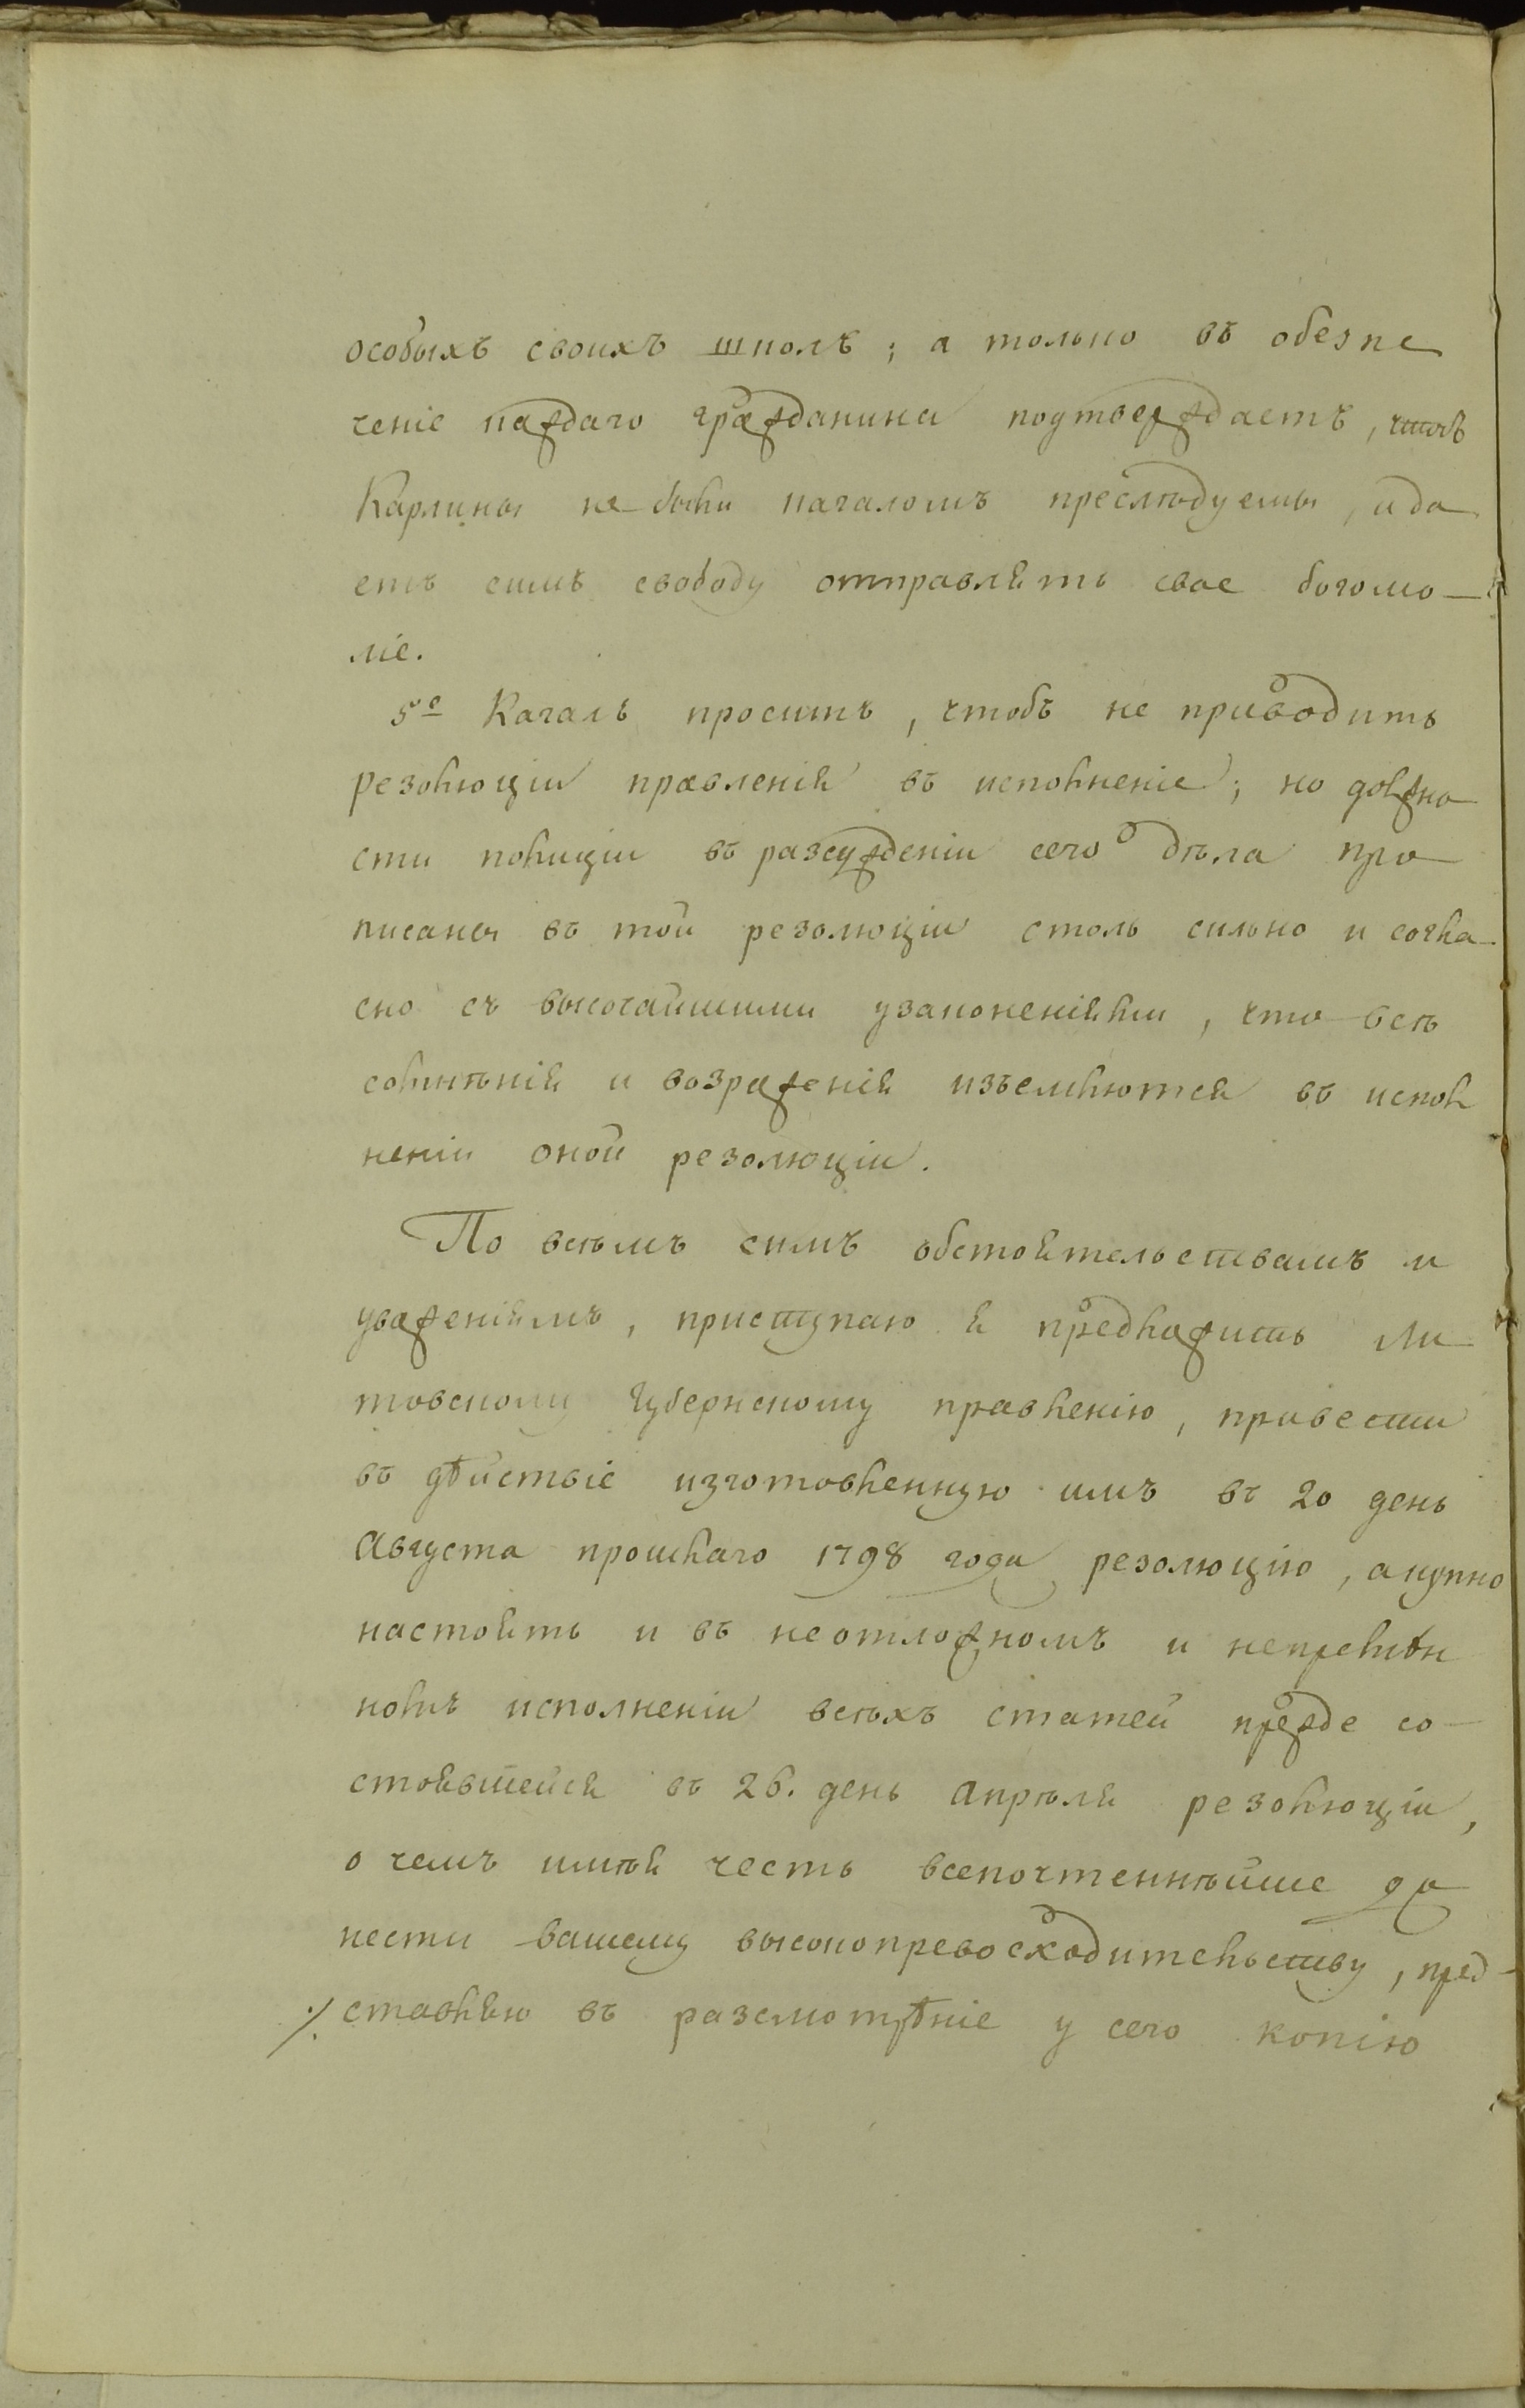 особыхъ своихъ школъ; а только въ обезпе
ченіе каждаго гражданина подтверждаетъ, чтобъ
Карлины не были кагаломъ преслѣдуемы, и да
етъ симъ свободу отправлять свое богомо-
ліе.
5е Кагалъ проситъ, чтобъ не приводить
резолюціи правленія въ исполненіе; но должно
сти полиціи въ разсужденіи сего дѣла про
писаны въ той резолюціи столь сильно и согла-
сно съ высочайшими узаконеніями, что всѣ
сомнѣнія и возраженія изъемлются въ испол
неніи оной резолюціи.
По всѣмъ симъ обстоятельствамъ и
уваженіямъ, приступаю я предложить Ли
товскому Губернскому правленію, привести
въ дѣйствіе изготовленную имъ въ 20 день
Августа прошлаго 1798 года резолюцію, а купно
настоять и въ неотложномъ и непремѣн
номъ исполненіи всѣхъ статей прежде со-
стоявшейся въ 26. день Апрѣля резолюціи,
о чемъ имѣя честь всепочтеннѣйше до
нести вашему высокопревосходительству, пред-
./. ставляю въ разсмотрѣніе у сего копію